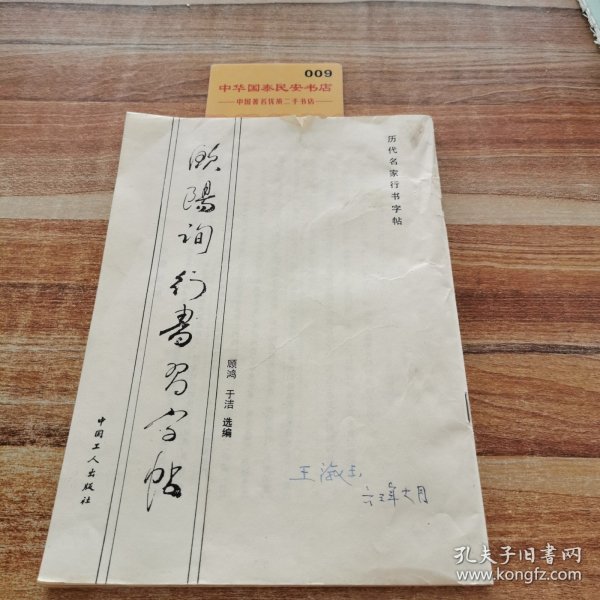 009
中华国泰民安书店
中国著名优质二手书店
历代名家行书字帖
欧陽询行書習字帖
顾鸿 于洁 选编
中国工人出版社
王淑
六三年七月
孔夫子旧书网
www.kongfz.com